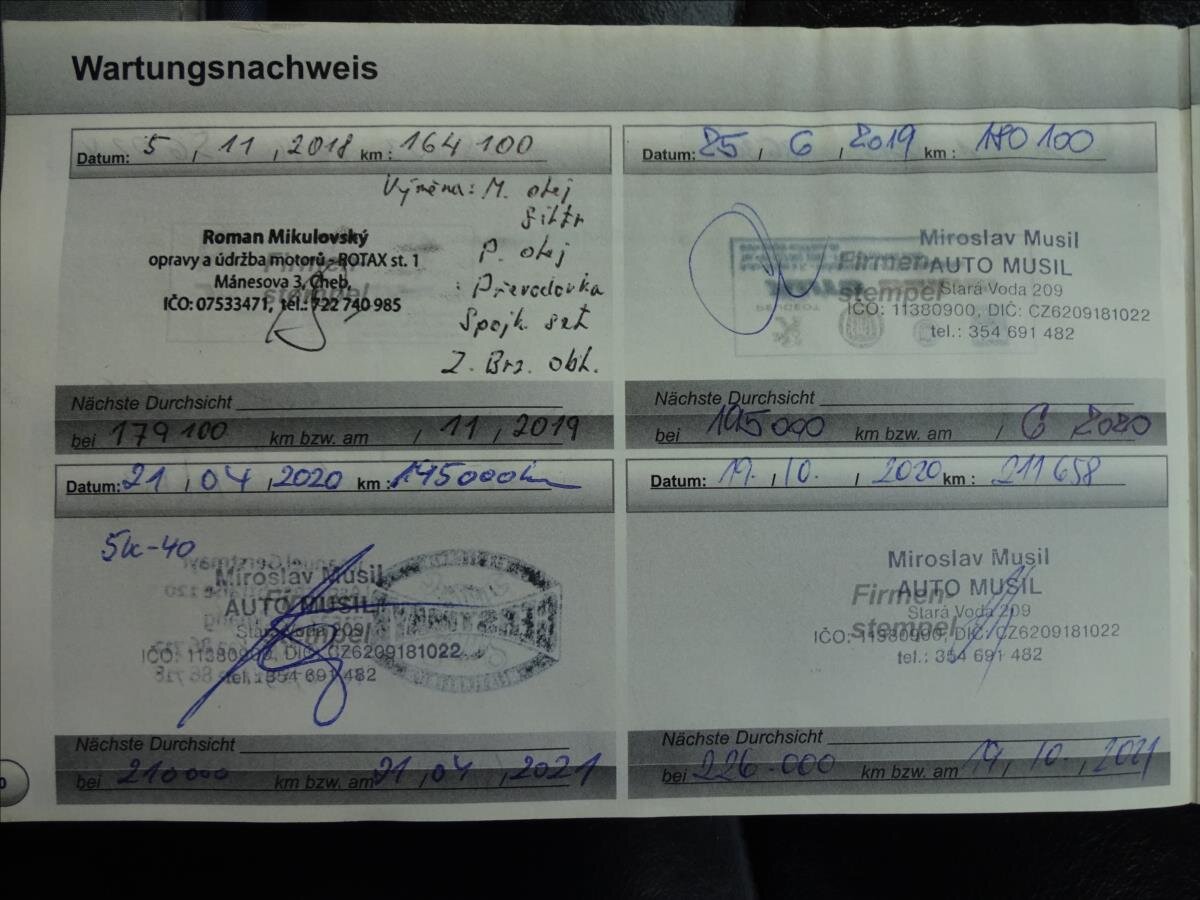 Wartungsnachweis
Datum: 5 , 11 , 2018 km : 164 100
Výměna: M. olej
filtr
P. olej
: Převodovka
Spojk. set
Z. Brz. obl.
Roman Mikulovský
opravy a údržba motorů - ROTAX st. 1
Mánesova 3, Cheb,
IČO: 07533471, tel.: 722 740 985
Firmen-
stempel
Nächste Durchsicht
bei 179 100 km bzw. am , 11 , 2019
Datum: 25 , 6 , 2019 km : 180 100
Miroslav Musil
AUTO MUSIL
Stará Voda 209
IČO: 11380900, DIČ: CZ6209181022
tel.: 354 691 482
Firmen-
stempel
Nächste Durchsicht
bei 195 000 km bzw. am , 6 , 2020
Datum: 21 , 04 , 2020 km : 195000km
5W-40
Miroslav Musil
AUTO MUSIL
Stará Voda 209
IČO: 11380900, DIČ: CZ6209181022
tel.: 354 691 482
Firmen-
stempel
Nächste Durchsicht
bei 210000 km bzw. am 21 , 04 , 2021
Datum: 19. , 10. , 2020 km : 211 658
Miroslav Musil
AUTO MUSIL
Stará Voda 209
IČO: 11380900, DIČ: CZ6209181022
tel.: 354 691 482
Firmen-
stempel
Nächste Durchsicht
bei 226.000 km bzw. am 19 , 10. , 2021